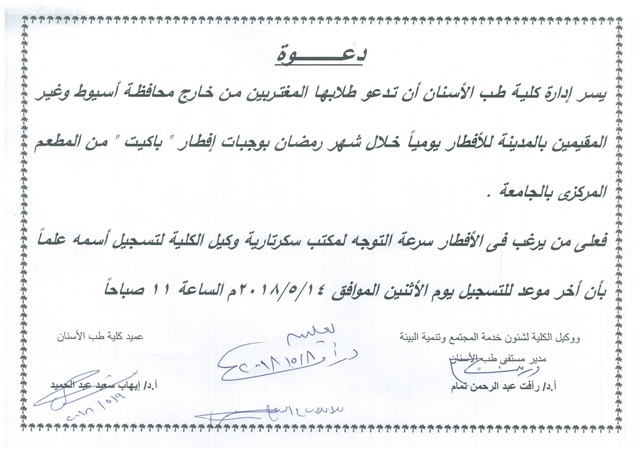 دعـــــوة
يسر إدارة كلية طب الأسنان أن تدعو طلابها المغتربين من خارج محافظة أسيوط وغير
المقيمين بالمدينة للأفطار يومياً خلال شهر رمضان بوجبات إفطار " باكيت " من المطعم
المركزى بالجامعة .
فعلى من يرغب فى الأفطار سرعة التوجه لمكتب سكرتارية وكيل الكلية لتسجيل أسمه علماً
بأن أخر موعد للتسجيل يوم الأثنين الموافق ٢٠١٨/٥/١٤م الساعة ١١ صباحاً
ووكيل الكلية لشئون خدمة المجتمع وتنمية البيئة
مدير مستشفى طب الأسنان
أ.د/ رأفت عبد الرحمن تمام
٢٠١٨/٥/٨
عميد كلية طب الأسنان
أ.د/ إيهاب سعيد عبد الحميد
٢٠١٨/٥/٩